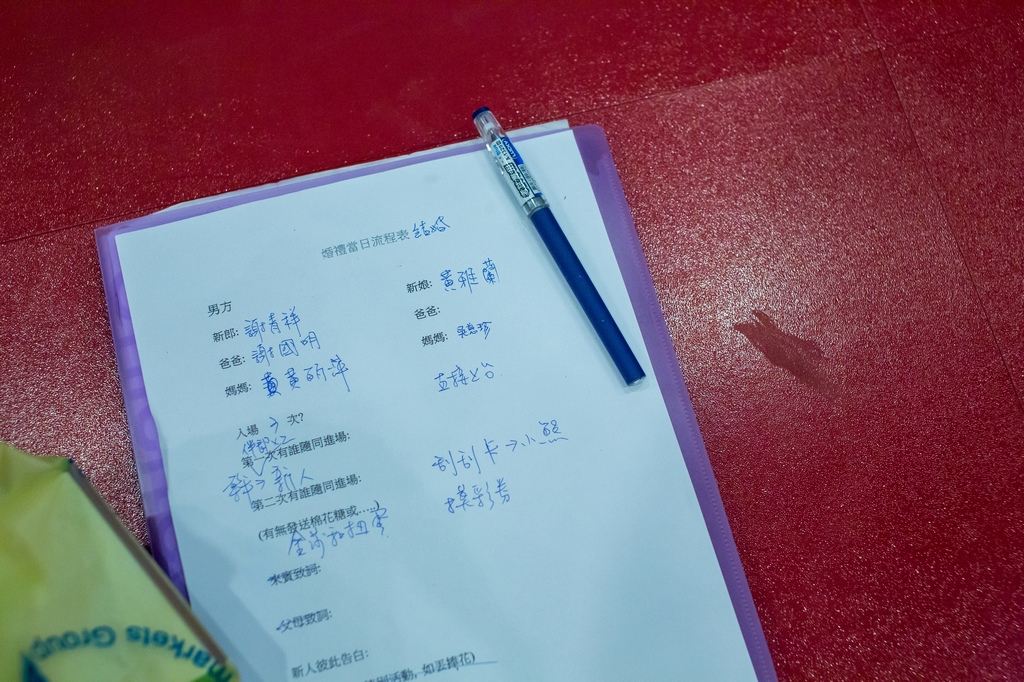 婚禮當日流程表 結婚
男方
新郎: 謝青祥
爸爸: 謝國明
媽媽: 黃丽萍
新娘: 黃雅蘭
爸爸:
媽媽: 吳惠珍
直接上台
入場 次?
第一次有誰隨同進場:
新人
第二次有誰隨同進場:
(有無發送棉花糖或.....)
金莎和扭蛋
刮刮卡→小熊
摸彩券
來賓致詞:
父母致詞:
新人彼此告白:
活動, 如丟捧花)
markets Group